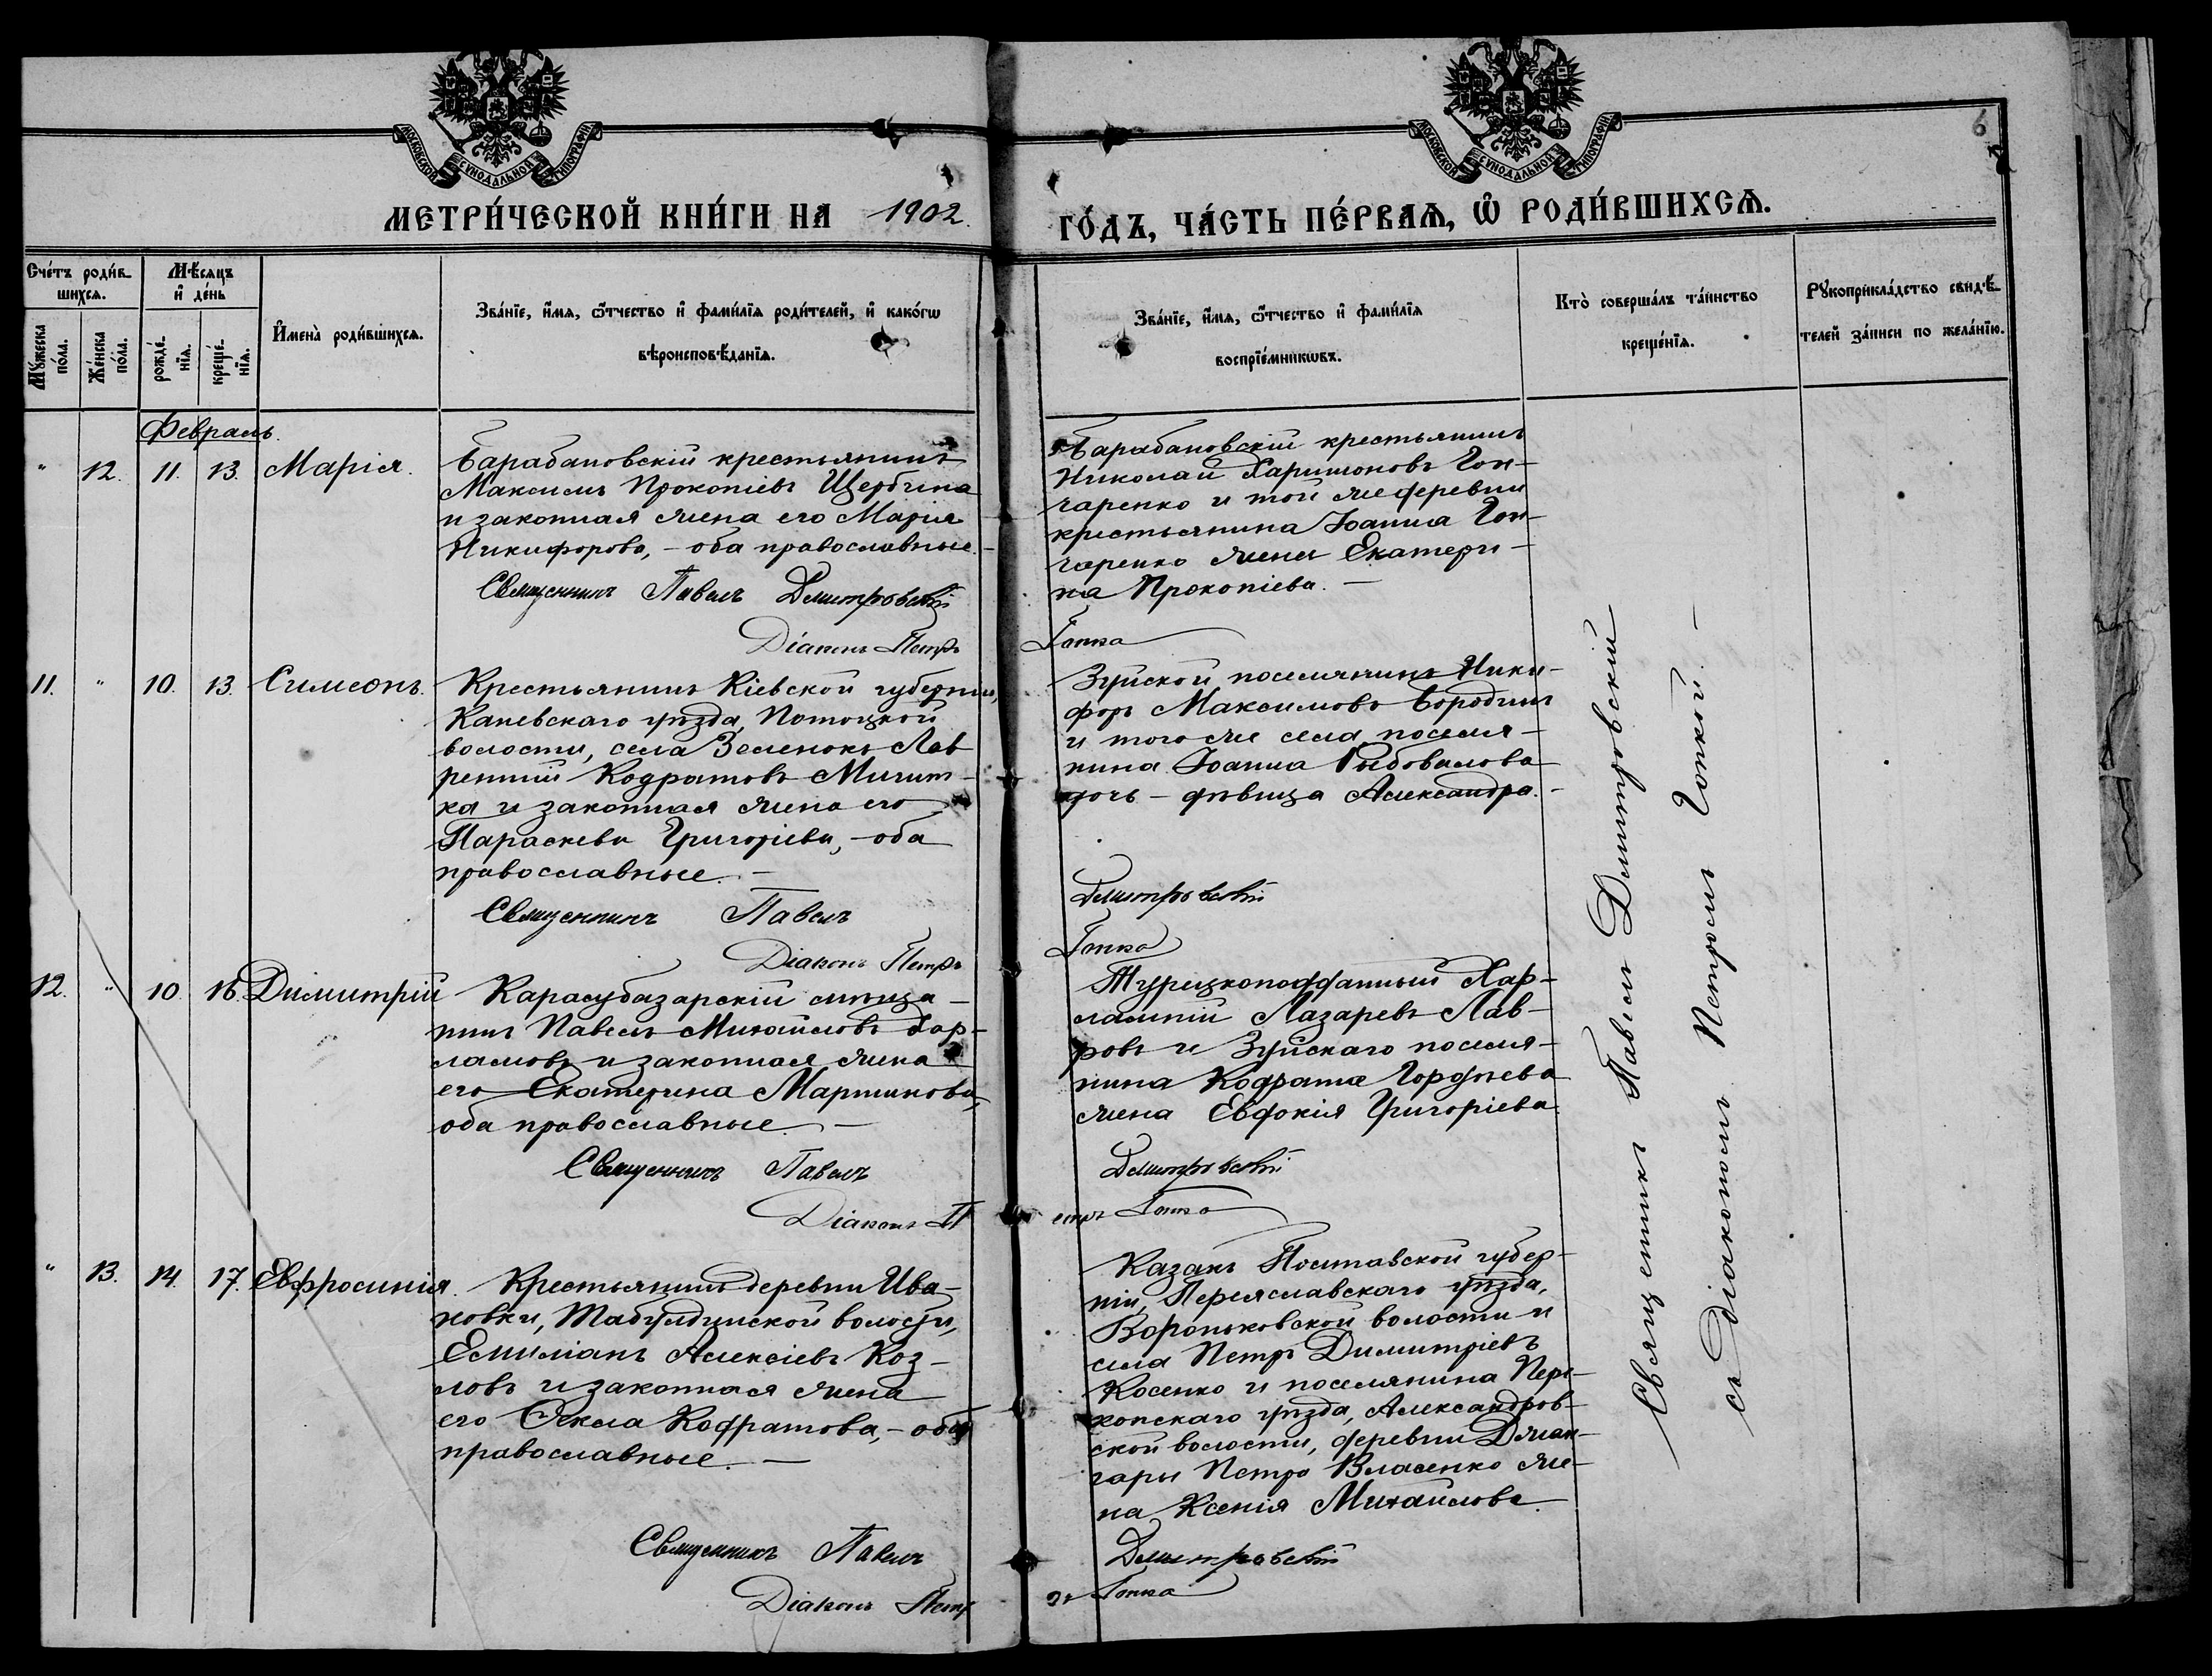 МОСКОВСКОЙ СѴНОДАЛЬНОЙ ТИПОГРАФІИ
МОСКОВСКОЙ СѴНОДАЛЬНОЙ ТИПОГРАФІИ
6
МЕТРИ́ЧЕСКОЙ КНИ́ГИ НА 1902. ГО́ДЪ, ЧА́СТЬ ПЕ́РВАѦ, Ѡ҆ РОДИ́ВШИХСѦ.
Сче́тъ роди́в-
шихсѧ.
Мꙋ́жеска
по́ла.
Же́нска
по́ла.
Мѣ́сѧцъ
и҆ де́нь
рожде́-
нїѧ.
креще́-
нїѧ.
И҆мена̀ роди́вшихсѧ.
Зва́нїе, и҆́мѧ, ѻ҆́тчество и҆ фами́лїѧ роди́телей, и҆ како́гѡ
вѣроисповѣ́данїѧ.
Зва́нїе, и҆́мѧ, ѻ҆́тчество и҆ фами́лїѧ
воспрїе́мникѡвъ.
Кто̀ соверша́лъ та́инство
креще́нїѧ.
Рꙋкоприкла́дство свидѣ́-
телей за́писи по жела́нїю.
Февраль.
" 12. 11. 13. Марія.
Барабановскій крестьянинъ
Максимъ Прокопіевъ Щербина
и законная жена его Марія
Никифорова, - оба православные. -
Священникъ Павелъ Дмитровскій
Діаконъ Петръ Гопка
Барабановскій крестьянинъ
Николай Харитоновъ Гон-
чаренко и той же деревни
крестьянина Іоанна Гон-
чаренко жена Екатери-
на Прокопіева. -
11. " 10. 13. Симеонъ.
Крестьянинъ Кіевской губерніи,
Каневскаго уѣзда, Потоцкой
волости, села Зеленокъ Лав
рентій Кодратовъ Мигит-
ка и законная жена его
Параскева Григоріева, - оба
православные. -
Священникъ Павелъ Дмитровскій
Діаконъ Петръ Гопка
Зуйской поселянинъ Ники-
форъ Максимовъ Бородинъ
и того же села поселя-
нина Іоанна Рыбовалова
дочь - дѣвица Александра. -
12. " 10. 16. Димитрій
Карасубазарскій мѣща-
нинъ Павелъ Михайловъ Хар-
ламовъ и законная жена
его Екатерина Мартинова,
оба православные. -
Священникъ Павелъ Дмитровскій
Діаконъ Петръ Гопка
Турецкоподданный Хар-
лампій Лазаревъ Лав-
ровъ и Зуйскаго поселя-
нина Кодрата Гордѣева
жена Евдокія Григоріева.
" 13. 14. 17. Евфросинія.
Крестьянинъ деревни Ива-
новки, Табулдинской волости,
Емиліанъ Алексіевъ Коз-
ловъ и законная жена
его Ѳекла Кодратова, - оба
православные. -
Священникъ Павелъ Дмитровскій
Діаконъ Петръ Гопка
Казакъ Полтавской губер-
ніи, Переяславскаго уѣзда,
Вороньковской волости и
села Петръ Димитріевъ
Косенко и поселянина Пере-
копскаго уѣзда, Александров-
ской волости, деревни Джан-
гары Петра Власенко же-
на Ксенія Михайлова.
Священникъ Павелъ Дмитровскій
съ діакономъ Петромъ Гопкой. -